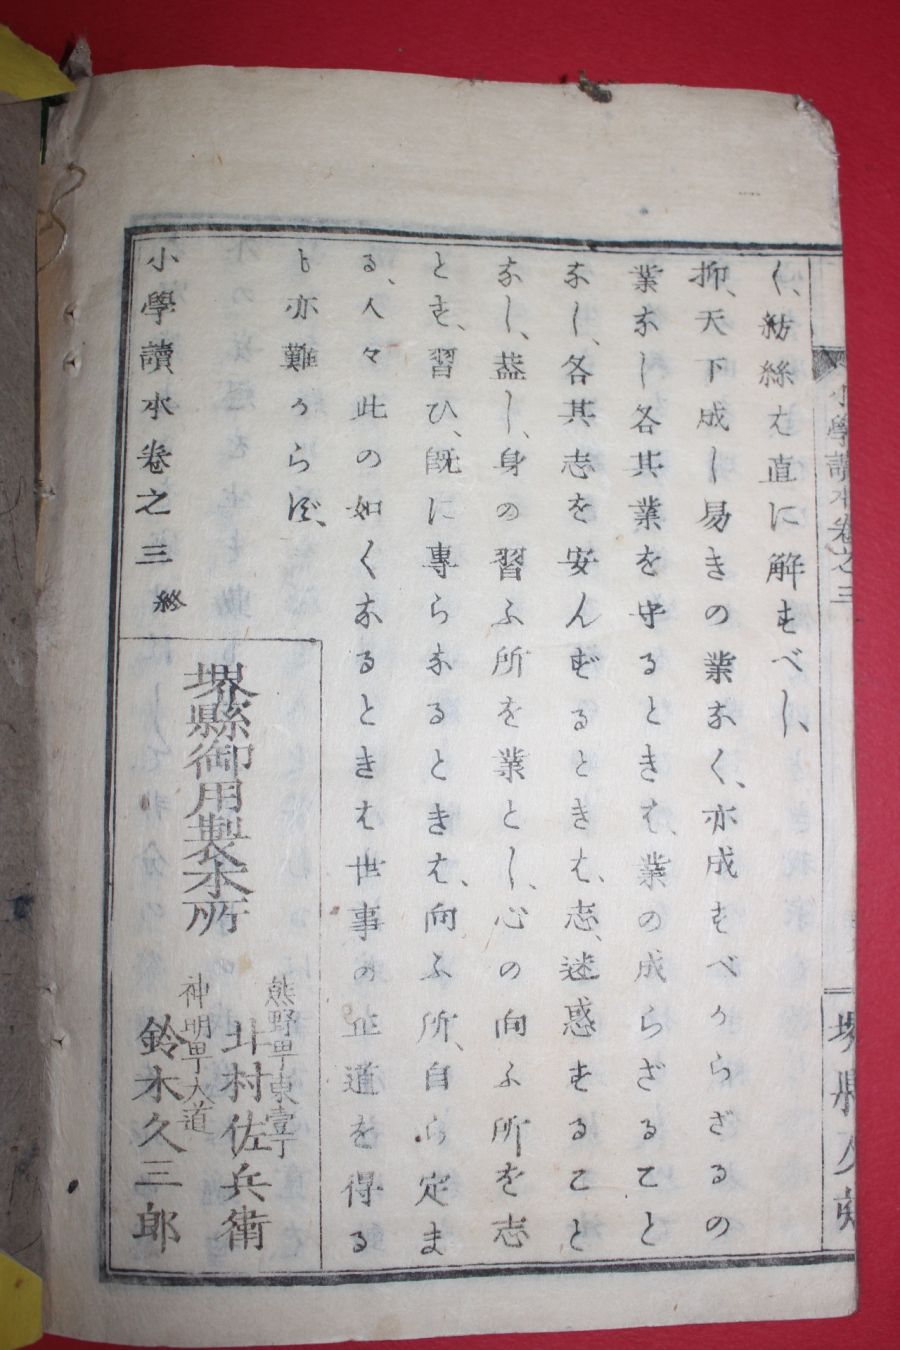 小學讀本卷之三
堺縣
く、紡絲は直に解すべし、
抑、天下成し易きの業なく、亦成すべからざるの
業なし各其業を守るときは、業の成らざること
なし、各其志を安んずるときは、志、迷惑することと
なし、蓋し、身の習ふ所を業とし、心の向ふ所を志
とす、習ひ、既に專らなるときは、向ふ所、自ら定ま
る、人々此の如くなるときは世事の正道を得る
も亦難からず、
小學讀本卷之三 終
堺縣御用製本所
熊野甼東壹丁
北村佐兵衛
神明甼大道
鈴木久三郎